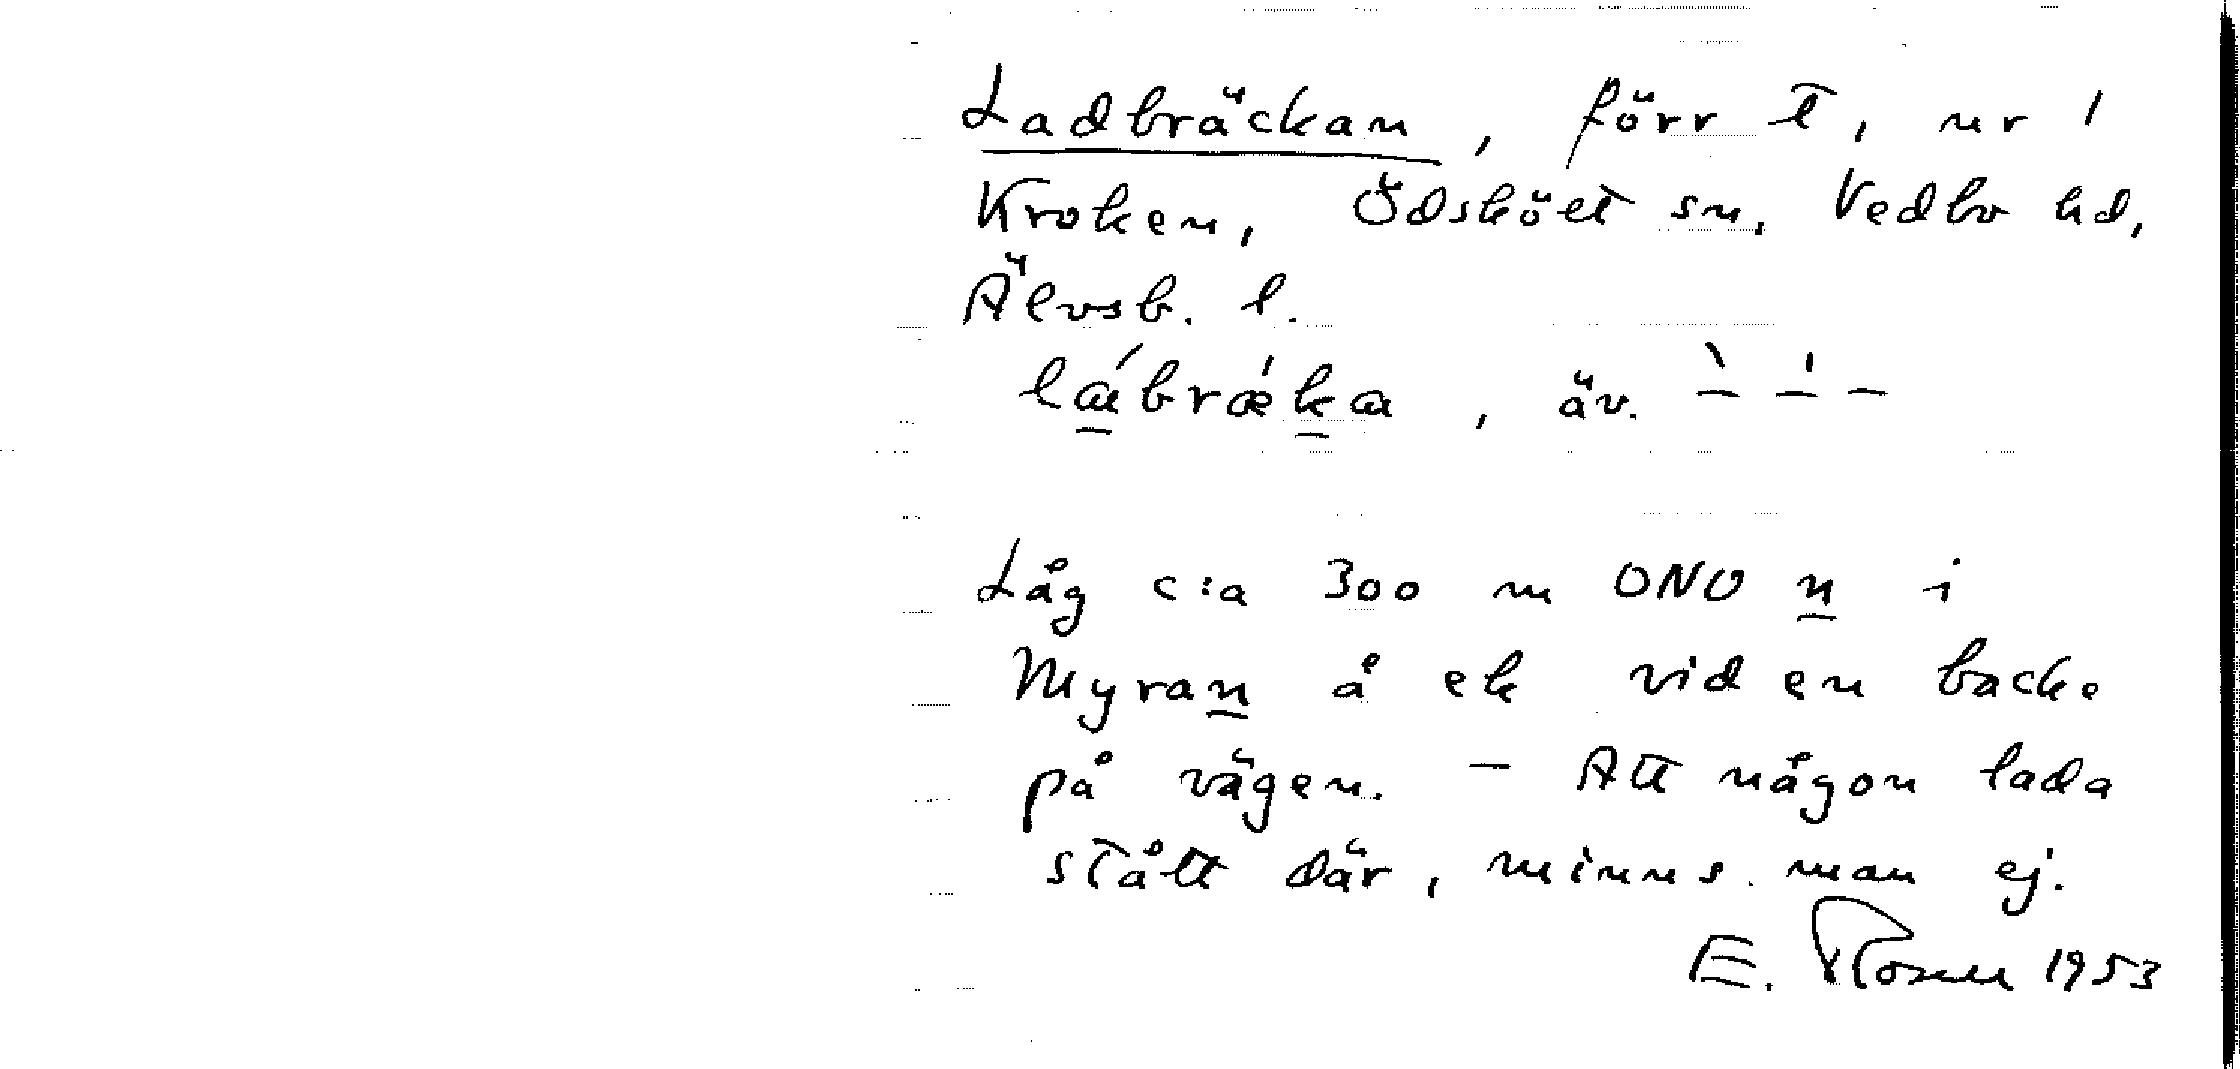 Ladbräckan, förr t, nr 1
Kroken, Ödskölt sn. Vedbo hd,
Älvsb. l.
äv.
Låg c:a 300 m ONO n i
Myran å ek vid en backe
på vägen. – Att någon lada
stått där, minns man ej.
E. 1953